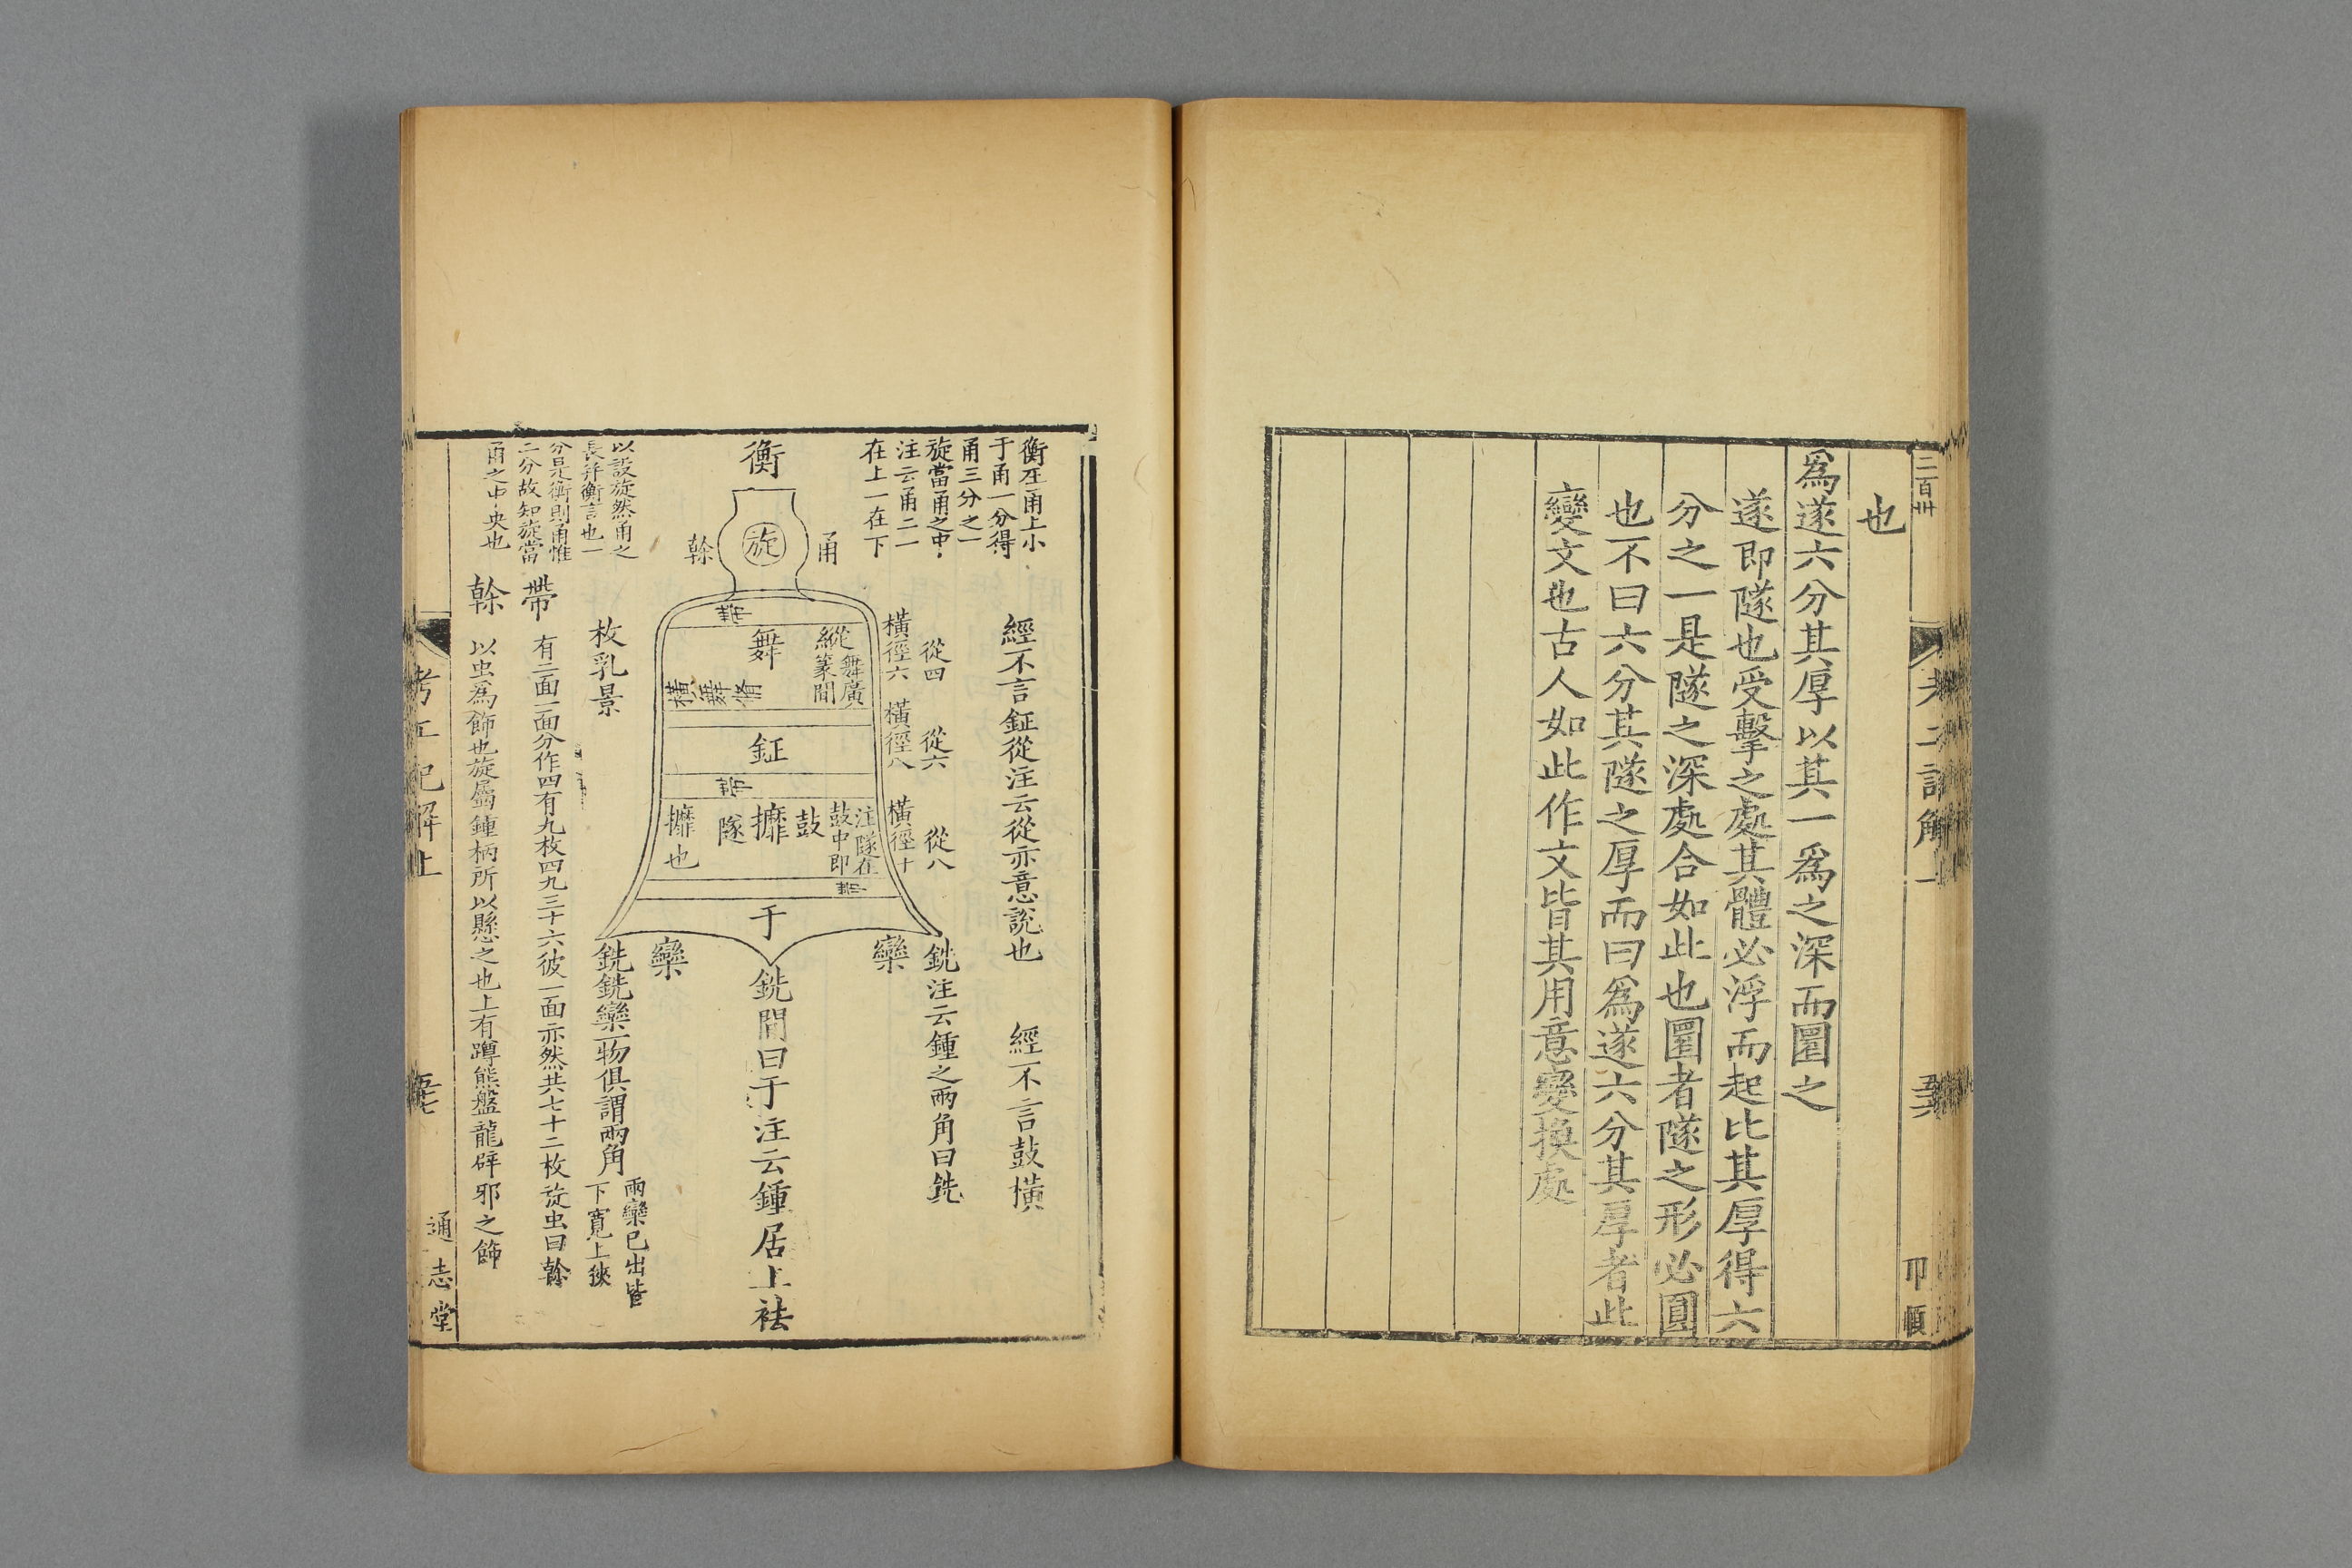 二百卅
考工記解上
也
爲遂六分其厚以其一爲之深而圜之
遂即隧也受擊之處其體必浮而起比其厚得六
分之一是隧之深處合如此也圜者隧之形必圓
也不曰六分其隧之厚而曰爲遂六分其厚者此
變文也古人如此作文皆其用意變換處
衡在甬上小
于甬一分得
甬三分之一
旋當甬之中
注云甬二一
在上一在下
經不言鉦從注云從亦意說也
經不言鼓橫
從四
從六
從八
橫徑六
橫徑八
橫徑十
銑注云鍾之兩角曰銑
欒
衡
甬
旋
幹
帶
舞廣
縱篆間
舞
橫舞脩
鉦
帶
注隧在
鼓中即
鼓
攠
隧
攠也
帶
于
銑間曰于注云鍾居上袪
欒
銑銑欒一物俱謂兩角
兩欒已出皆
下寬上狹
以設旋然甬之
長并衡言也一
分是衡則甬惟
二分故知旋當
甬之中央也
枚乳景
帶
有二面一面分作四有九枚四九三十六彼一面亦然共七十二枚旋虫曰幹
幹
以虫爲飾也旋屬鍾柄所以懸之也上有蹲熊盤龍辟邪之飾
考工記解上
通志堂